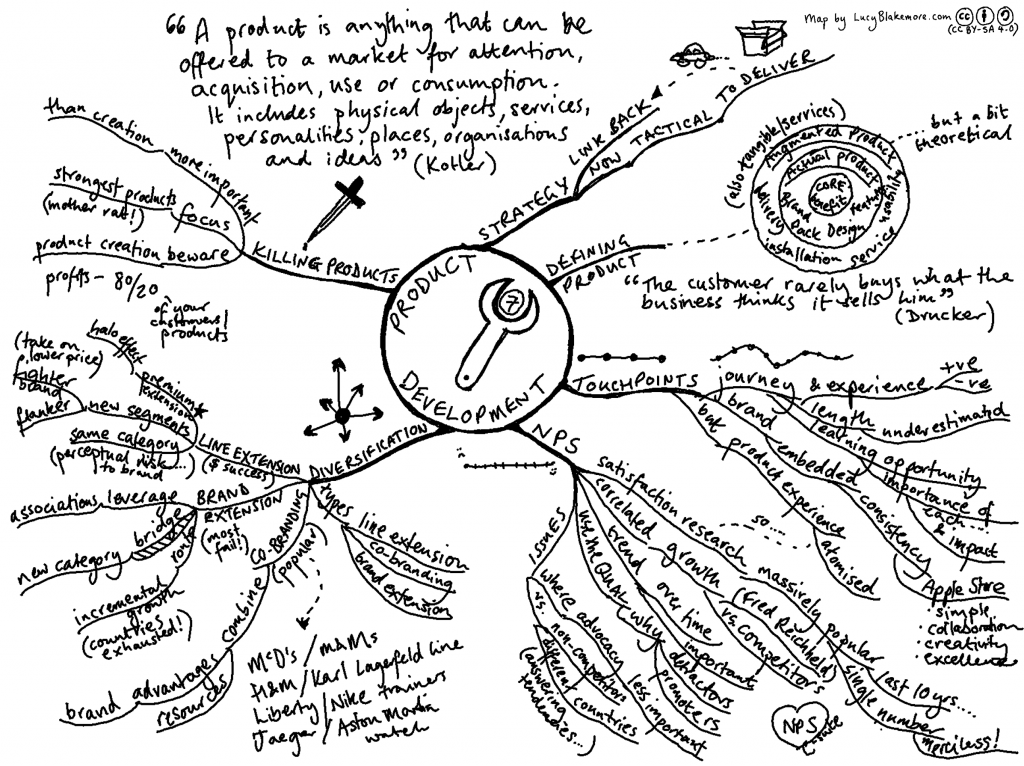 Map by LucyBlakemore.com
(CC BY-SA 4.0)
"A product is anything that can be
offered to a market for attention,
acquisition, use or consumption.
It includes physical objects, services,
personalities, places, organisations
and ideas" (Kotler)
PRODUCT
DEVELOPMENT
7
STRATEGY
LINK BACK
NOW TACTICAL TO DELIVER
DEFINING
PRODUCT
(also tangible/services)
Augmented product
Actual product
CORE
benefit
Brand
features
Pack Design
delivery
usability
installation service
...but a bit
theoretical
"The customer rarely buys what the
business thinks it sells him"
(Drucker)
TOUCHPOINTS
journey
& experience
+ve
-ve
length underestimated
learning opportunity
importance of
each...
& impact
brand
embedded
consistency
Apple Store
· simple
· collaboration
· creativity
· excellence
but
product experience
atomised
NPS
satisfaction research
massively
popular
last 10 yrs....
single number
merciless!
so...
correlated
growth
(Fred Reichheld)
vs. competitors
trend
over time
important
QUAL
(why
detractors
promoters
ISSUES
where advocacy
less important
vs. non-competitors
different countries
(answering
tendencies...)
NPS
DIVERSIFICATION
types
line extension
co-branding
brand extension
CO-BRANDING
(popular)
McD's / M&Ms
H&M / Karl Lagerfeld line
Liberty / Nike trainers
Jaeger / Aston Martin
watch
combine
brand
advantages
resources
BRAND
EXTENSION
(most
fail!)
leverage
associations
bridge
new category
incremental
growth
(countries
exhausted!)
LINE EXTENSION
($ success)
premium
extension*
halo effect
new segments
flanker
fighter
brand
(take on
lower price)
same category
(perceptual risk...
to brand
KILLING PRODUCTS
more important
than creation
focus
strongest products
(mother rat!)
product creation beware
profits - 80/20
of your
customers/
products